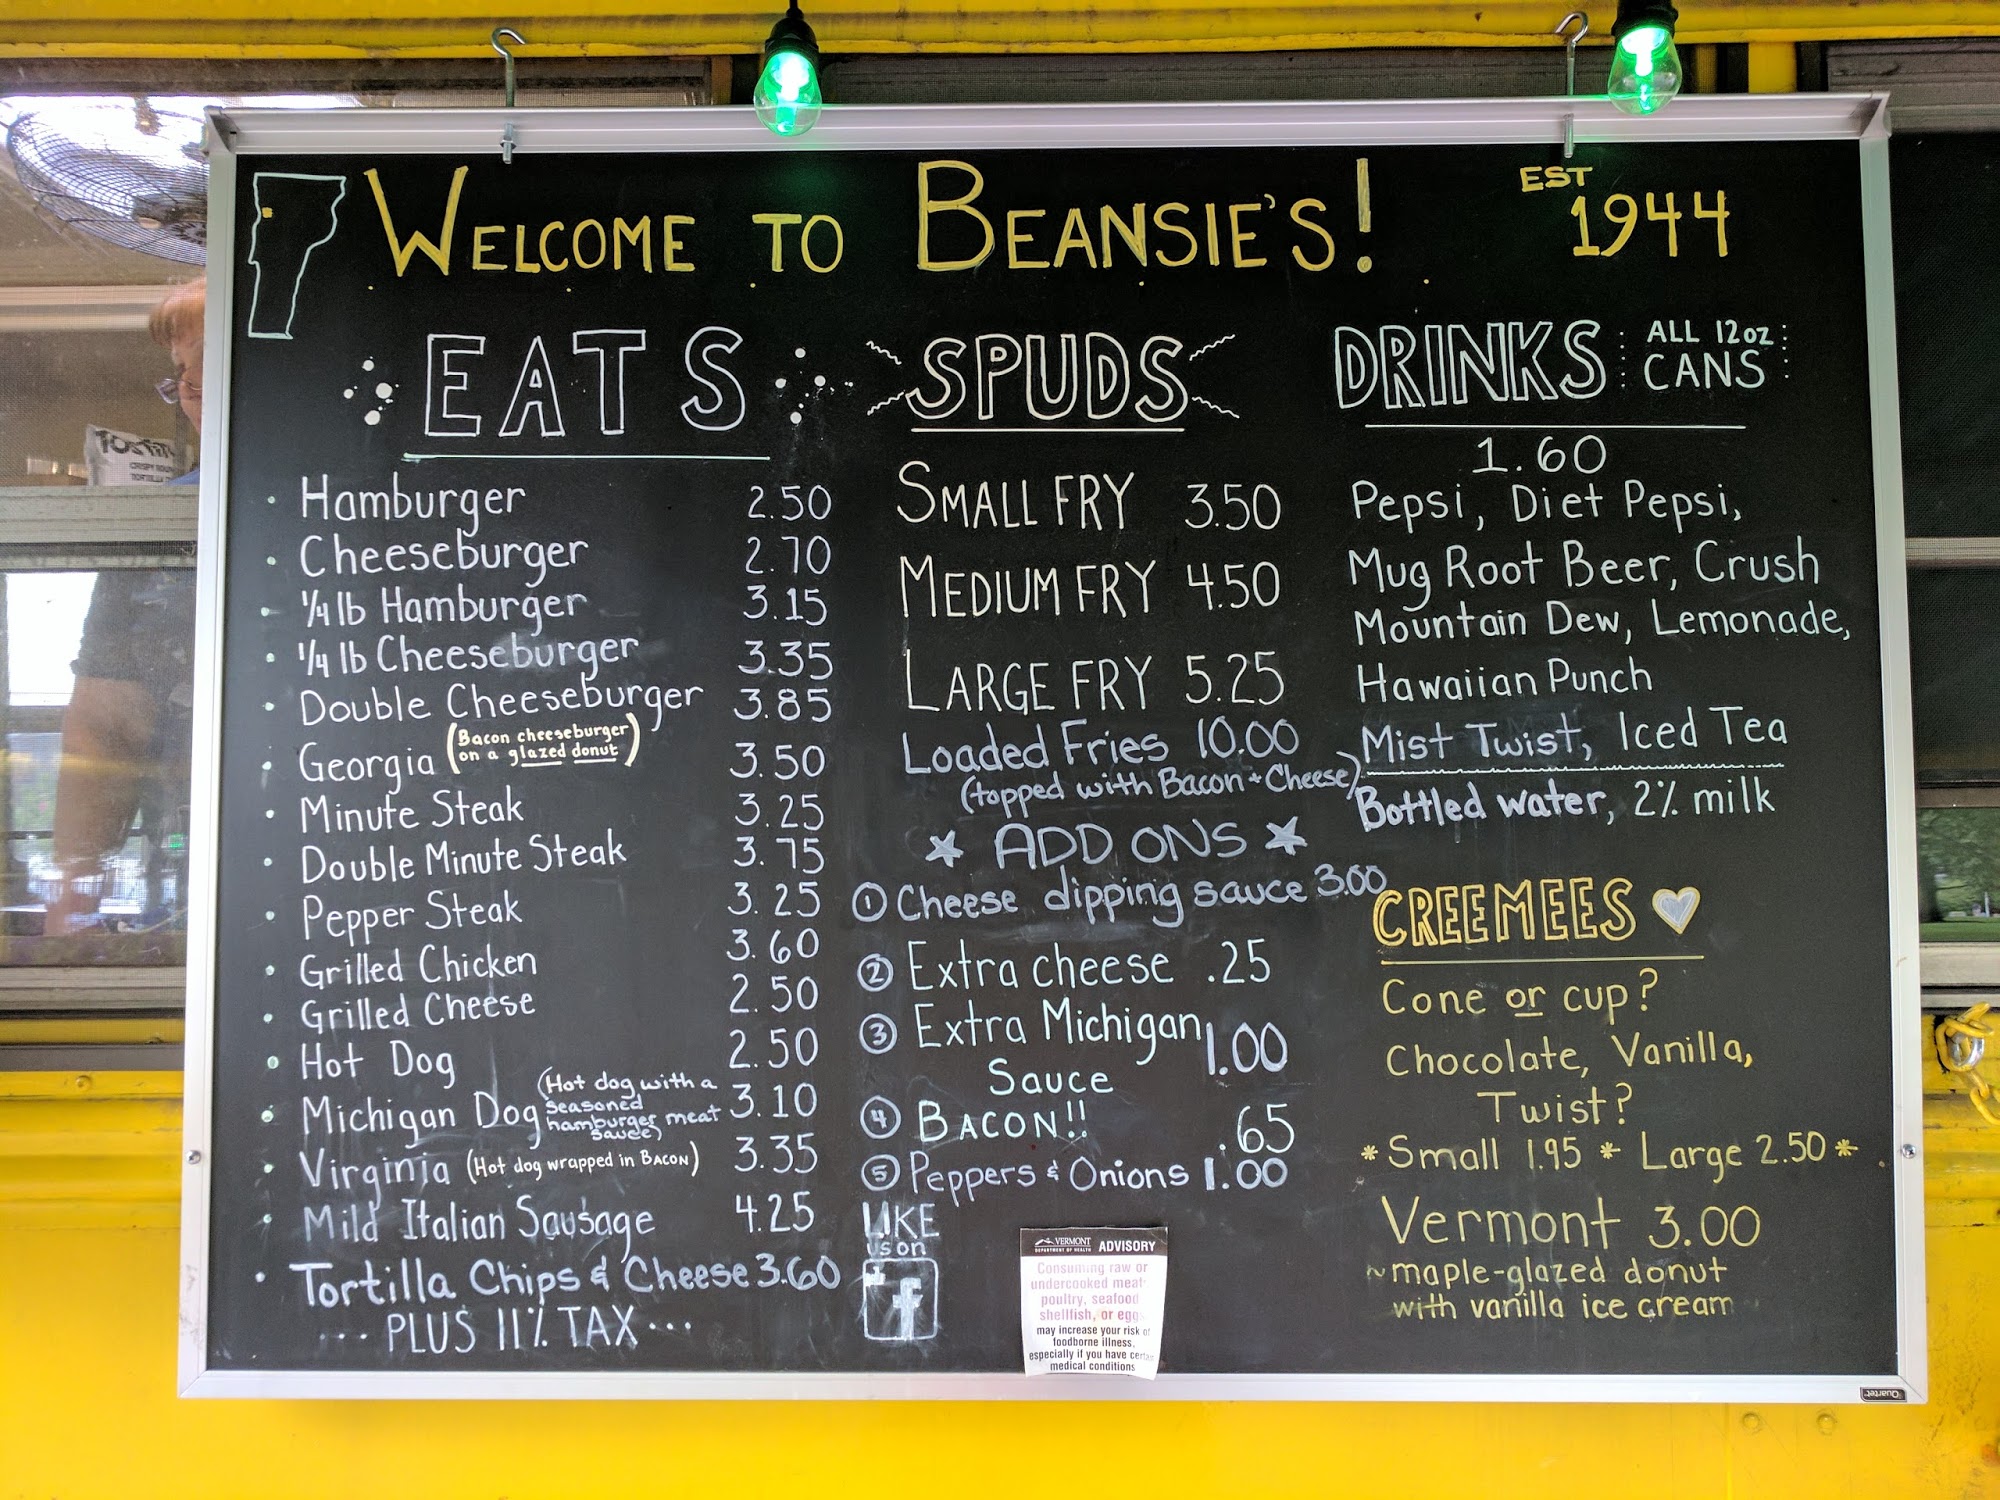 WELCOME TO BEANSIE'S!
EST
1944
EATS
Hamburger 2.50
Cheeseburger 2.70
1/4 lb Hamburger 3.15
1/4 lb Cheeseburger 3.35
Double Cheeseburger 3.85
Georgia (Bacon cheeseburger on a glazed donut) 3.50
Minute Steak 3.25
Double Minute Steak 3.75
Pepper Steak 3.25
Grilled Chicken 3.60
Grilled Cheese 2.50
Hot Dog 2.50
Michigan Dog (Hot dog with a seasoned hamburger meat sauce) 3.10
Virginia (Hot dog wrapped in BACON) 3.35
Mild Italian Sausage 4.25
Tortilla Chips & Cheese 3.60
... PLUS 11% TAX ...
SPUDS
SMALL FRY 3.50
MEDIUM FRY 4.50
LARGE FRY 5.25
Loaded Fries 10.00
(topped with Bacon + Cheese)
ADD ONS
1 Cheese dipping sauce 3.00
2 Extra cheese .25
3 Extra Michigan
Sauce 1.00
4 BACON!! .65
5 Peppers & Onions 1.00
LIKE
us on
f
VERMONT
DEPARTMENT OF HEALTH
ADVISORY
Consuming raw or
undercooked meat
poultry, seafood
shellfish, or eggs
may increase your risk of
foodborne illness,
especially if you have certain
medical conditions
DRINKS
ALL 12oz
CANS
1.60
Pepsi, Diet Pepsi,
Mug Root Beer, Crush
Mountain Dew, Lemonade,
Hawaiian Punch
Mist Twist, Iced Tea
Bottled water, 2% milk
CREEMEES
Cone or cup?
Chocolate, Vanilla,
Twist?
* Small 1.95 * Large 2.50 *
Vermont 3.00
~maple-glazed donut
with vanilla ice cream
Quartet